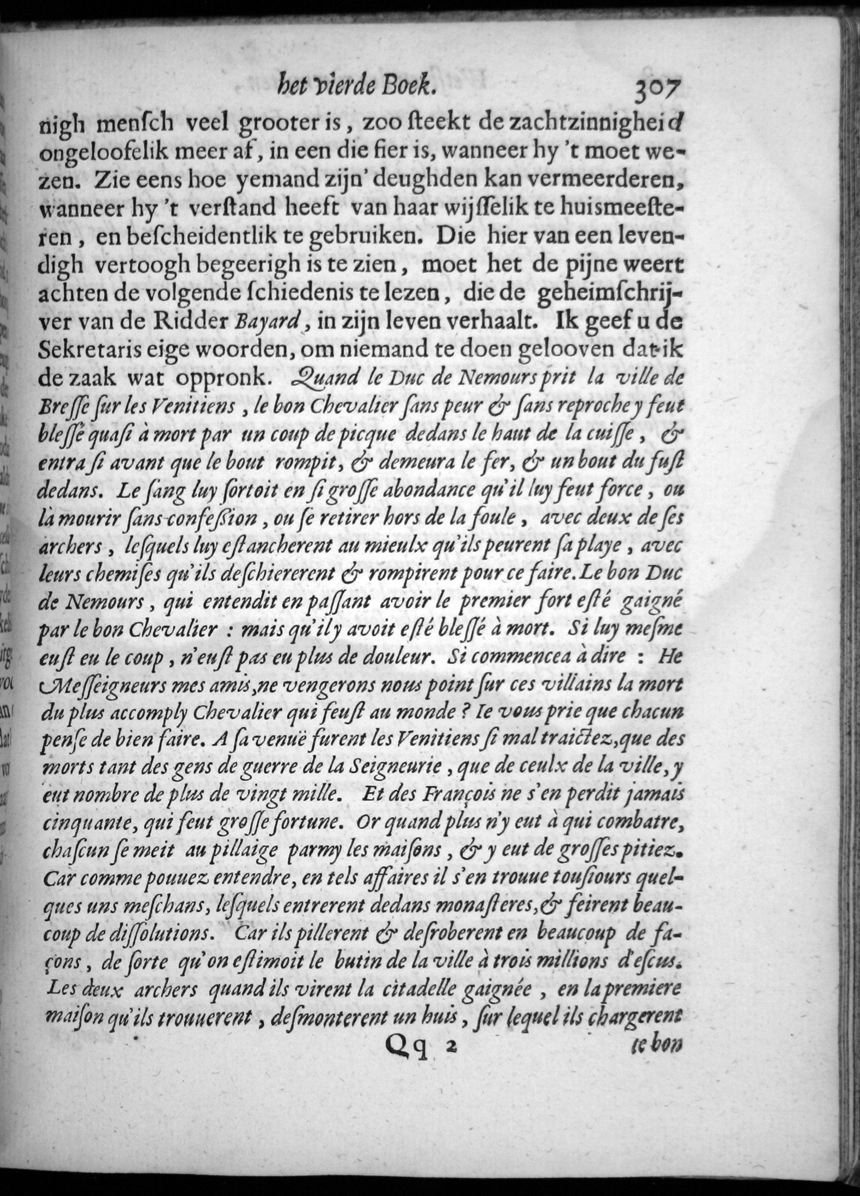 het vierde Boek. 307
nigh menſch veel grooter is, zoo ſteekt de zachtzinnigheid
ongeloofelik meer af, in een die fier is, wanneer hy 't moet we-
zen. Zie eens hoe yemand zijn' deughden kan vermeerderen,
wanneer hy 't verſtand heeft van haar wijſſelik te huismeeſte-
ren, en beſcheidentlik te gebruiken. Die hier van een leven-
digh vertoogh begeerigh is te zien, moet het de pijne weert
achten de volgende ſchiedenis te lezen, die de geheimſchrij-
ver van de Ridder Bayard, in zijn leven verhaalt. Ik geef u de
Sekretaris eige woorden, om niemand te doen gelooven dat ik
de zaak wat oppronk. Quand le Duc de Nemours prit la ville de
Breſſe ſur les Venitiens, le bon Chevalier ſans peur & ſans reproche y feut
bleſſé quaſi à mort par un coup de picque dedans le haut de la cuiſſe, &
entra ſi avant que le bout rompit, & demeura le fer, & un bout du fuſt
dedans. Le ſang luy ſortoit en ſi groſſe abondance qu'il luy feut force, ou
là mourir ſans confeßion, ou ſe retirer hors de la foule, avec deux de ſes
archers, leſquels luy eſtancherent au mieulx qu'ils peurent ſa playe, avec
leurs chemiſes qu'ils deſchiererent & rompirent pour ce faire. Le bon Duc
de Nemours, qui entendit en paſſant avoir le premier fort eſté gaigné
par le bon Chevalier : mais qu'il y avoit eſté bleſſé à mort. Si luy meſme
euſt eu le coup, n'euſt pas eu plus de douleur. Si commencea à dire : He
Meſſeigneurs mes amis, ne vengerons nous point ſur ces villains la mort
du plus accomply Chevalier qui feuſt au monde ? Ie vous prie que chacun
penſe de bien faire. A ſa venuë furent les Venitiens ſi mal traictez, que des
morts tant des gens de guerre de la Seigneurie, que de ceulx de la ville, y
eut nombre de plus de vingt mille. Et des François ne s'en perdit jamais
cinquante, qui feut groſſe fortune. Or quand plus n'y eut à qui combatre,
chaſcun ſe meit au pillaige parmy les maiſons, & y eut de groſſes pitiez.
Car comme pouuez entendre, en tels affaires il s'en trouue touſiours quel-
ques uns meſchans, leſquels entrerent dedans monaſteres, & feirent beau-
coup de diſſolutions. Car ils pillerent & deſroberent en beaucoup de fa-
çons, de ſorte qu'on eſtimoit le butin de la ville à trois millions d'eſcus.
Les deux archers quand ils virent la citadelle gaignée, en la premiere
maiſon qu'ils trouuerent, deſmonterent un huis, ſur lequel ils chargerent
Qq 2 le bon